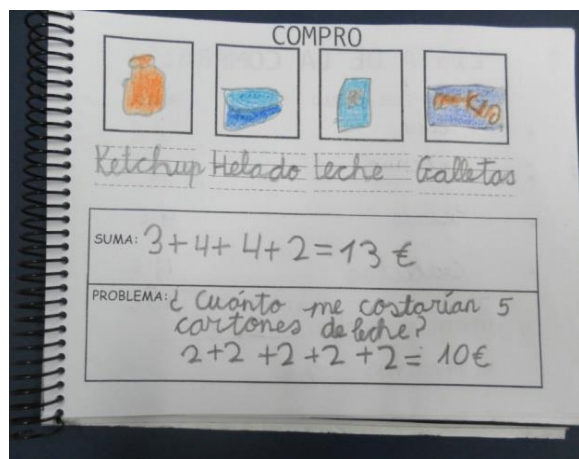 COMPRO
Ketchup Helado leche Galletas
SUMA: 3+4+4+2=13 €
PROBLEMA: ¿Cuánto me costarían 5
cartones de leche?
2+2+2+2+2= 10€